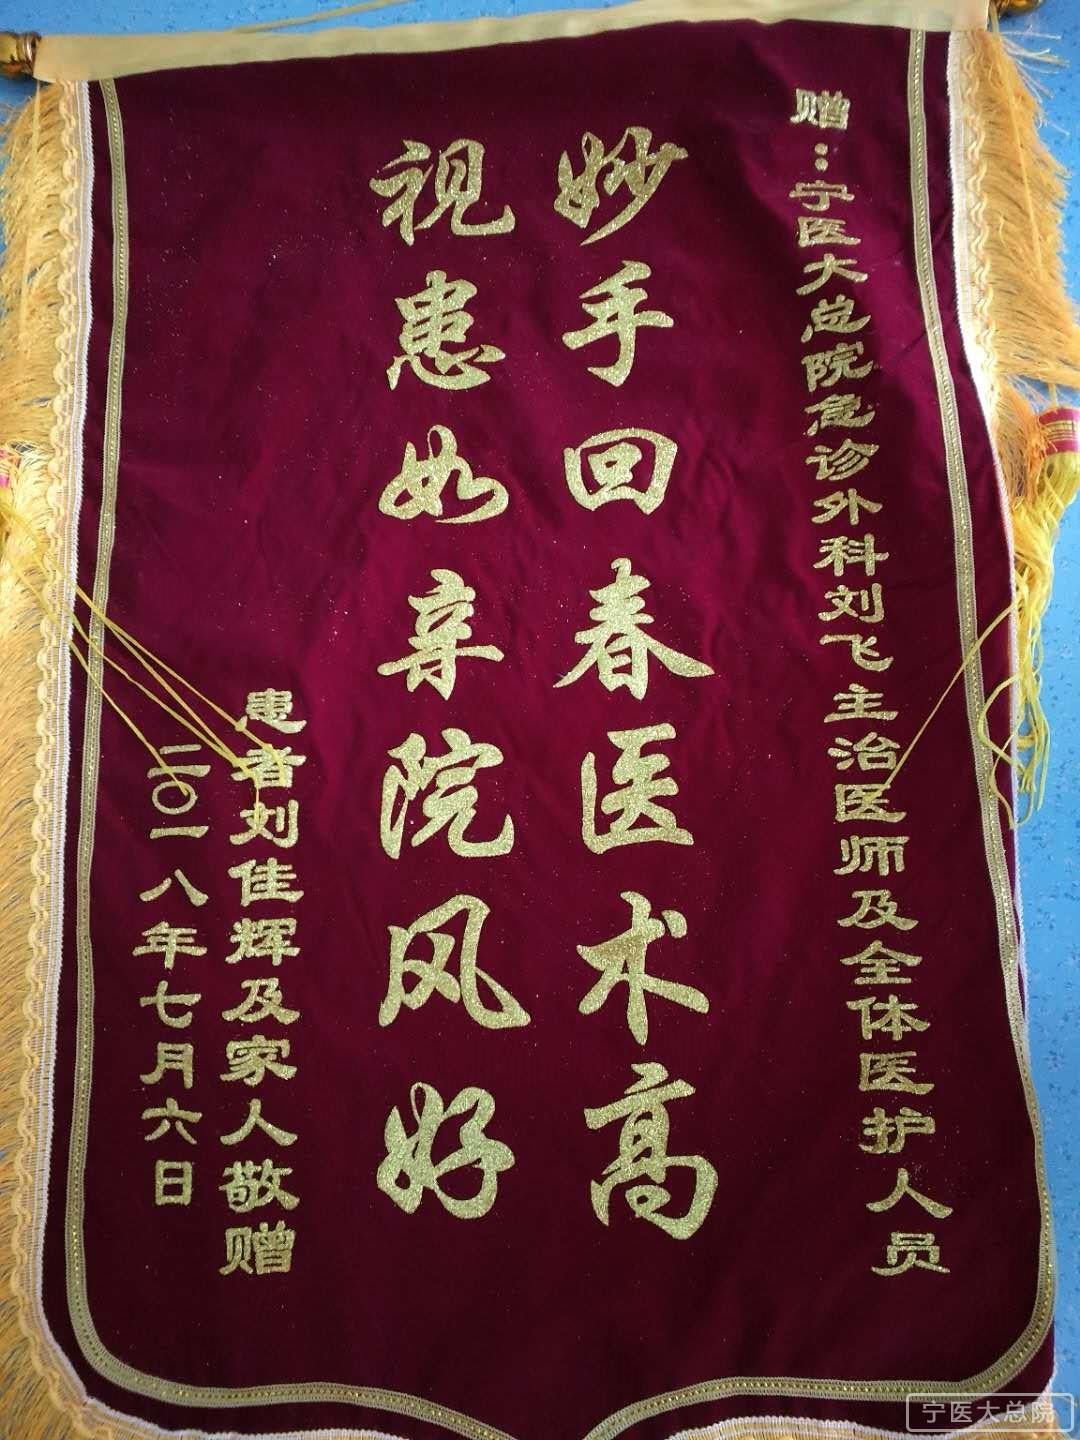 赠：宁医大总院急诊外科刘飞主治医师及全体医护人员
妙手回春医术高
视患如亲院风好
患者刘佳辉及家人敬赠
二〇一八年七月六日
宁医大总院